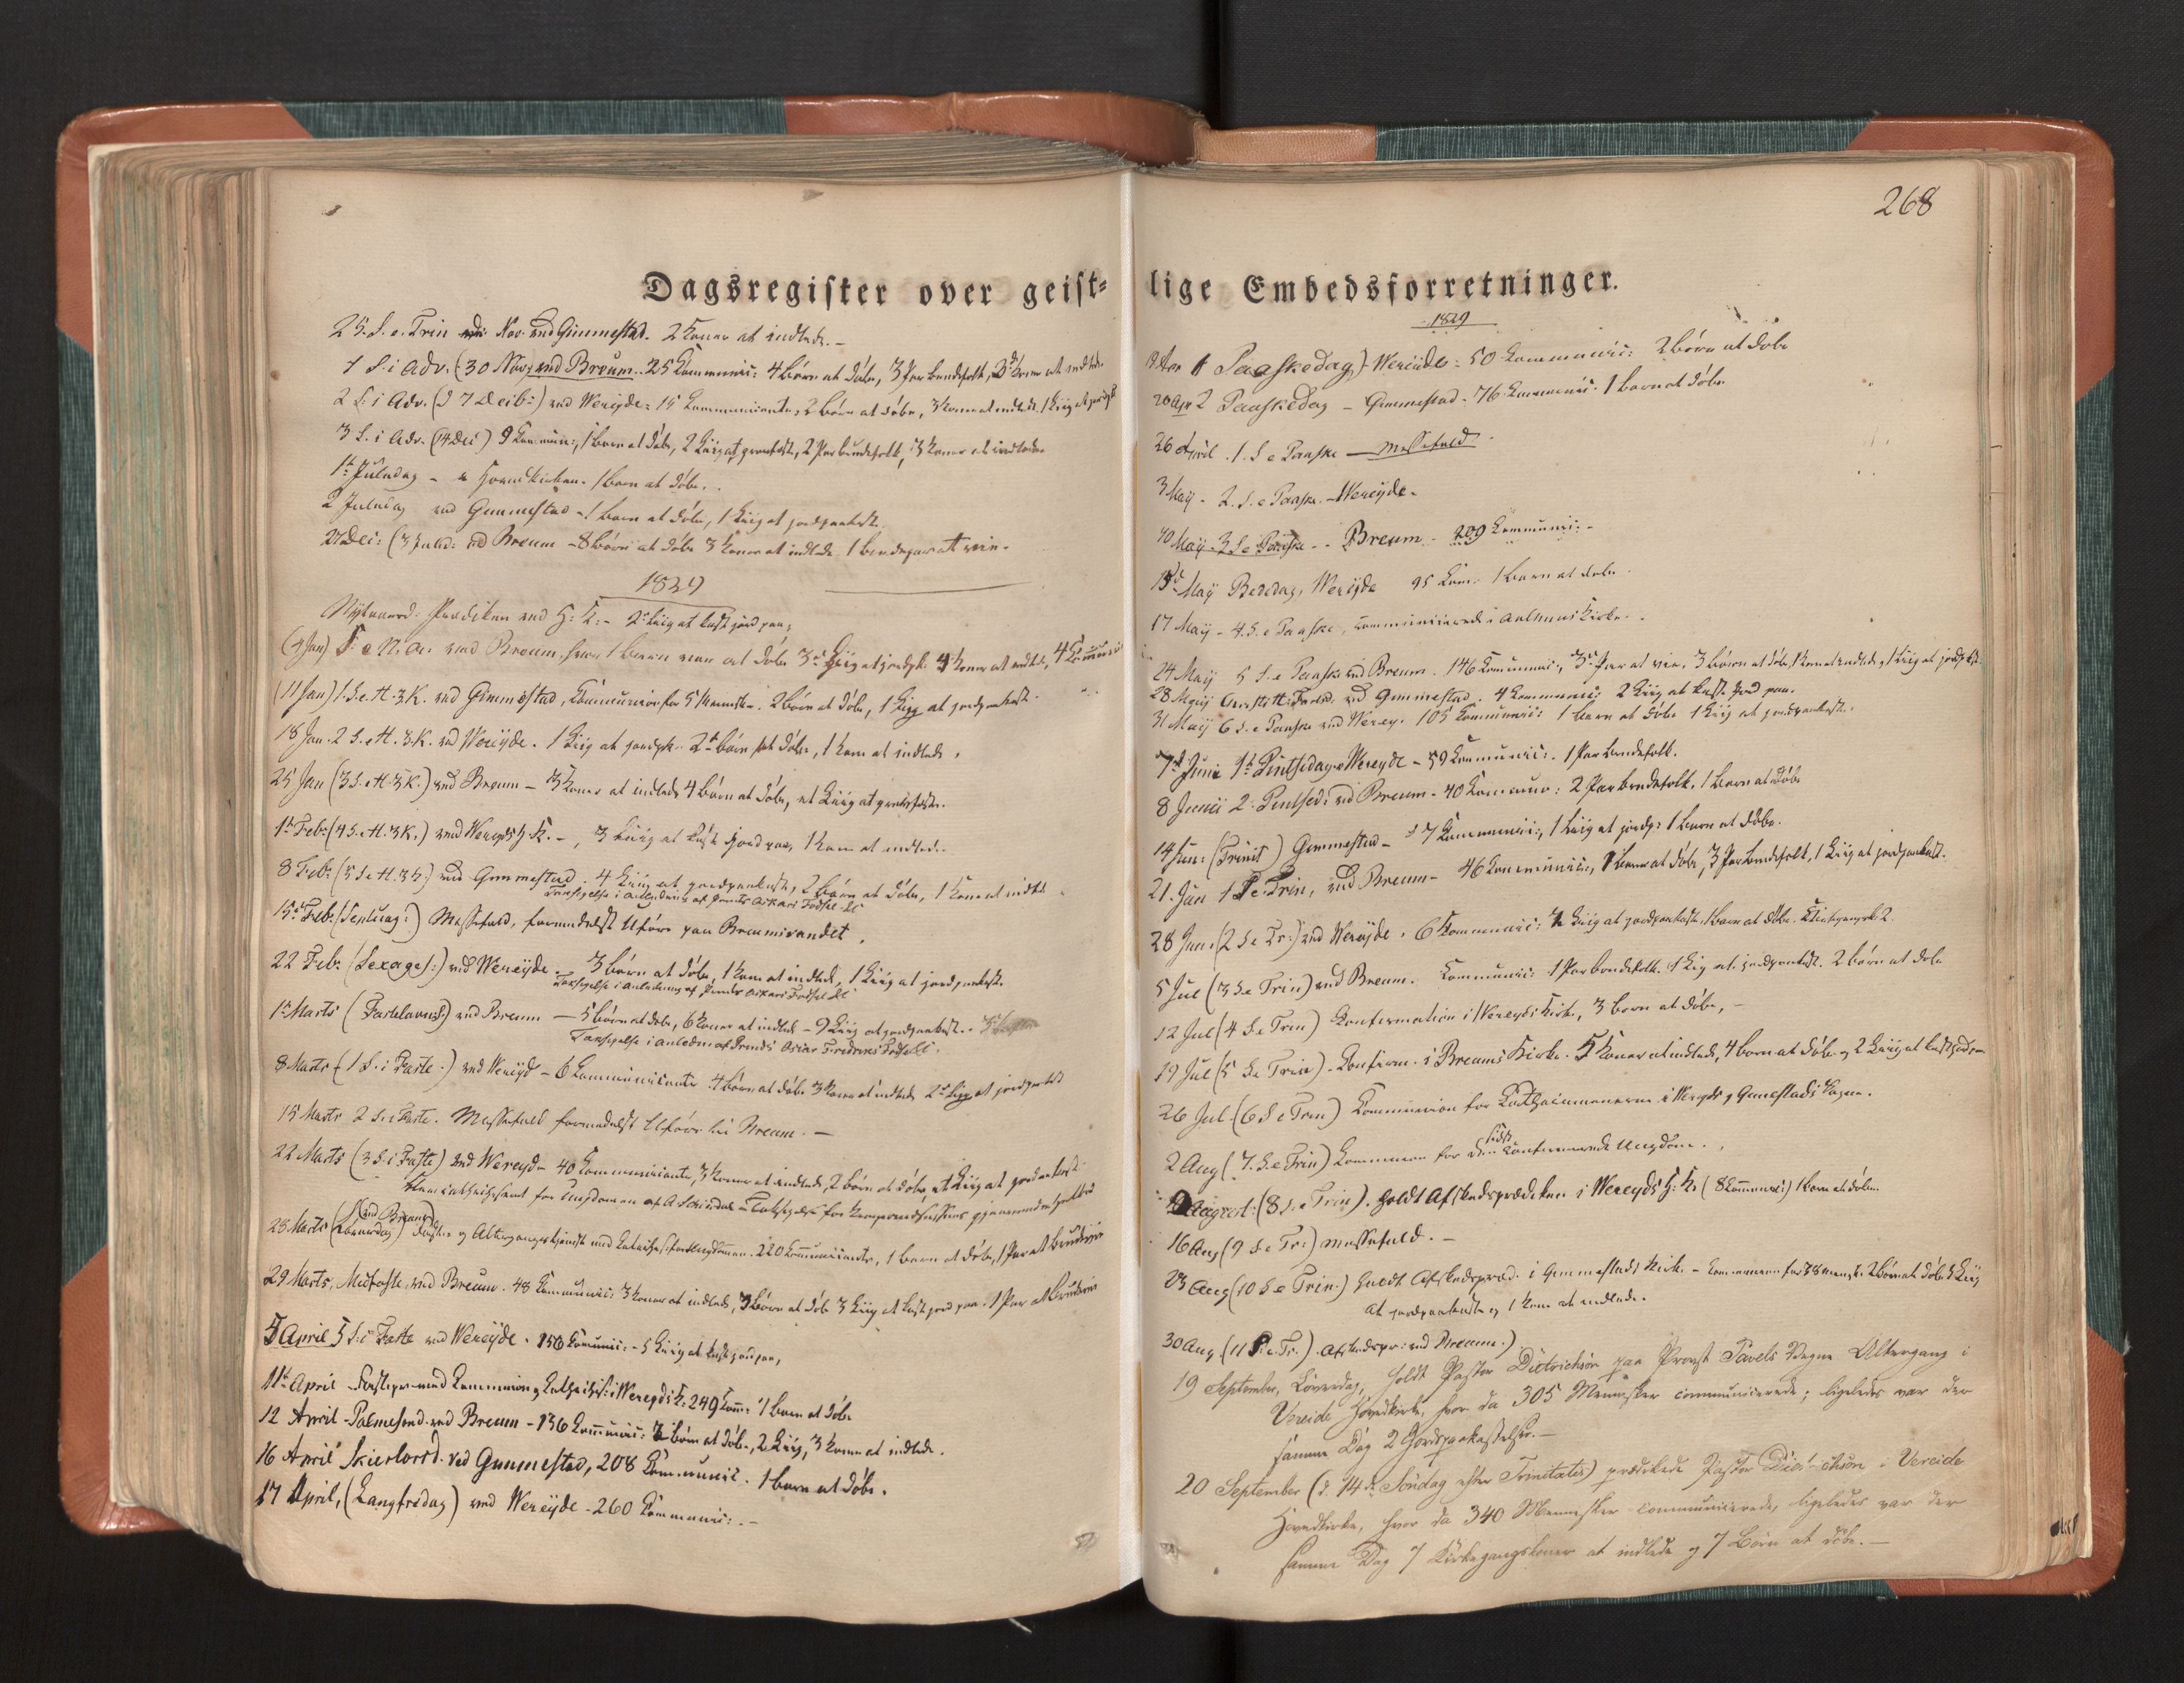 268
Dagsregister over geist-
25. S. e. Trin Nov. ved Gimmestad. 2 Koner at indlede. –
1 S. i Adv. (30 Nov.) ved Breum. 25 Communic: 4 börn at döbe, 3 Par brudefolk, at indlede
2 S. i Adv. (d 7 Decib:) ved Wereyde. 15 Communicanter, 2 börn at döbe, 3 Koner at indlede, 1 Liig
3 S. i Adv. (14 Dec) 9 Commun:, 1 barn at döbe, 2 Liig at, 2 Par brudefolk, 3 Koner at indlede
1t Juledag – Hovedkirken. 1 barn at döbe.
2 Juledag ved Gimmestad – 1 barn at döbe, 1 Liig at jordpaakaste
27 Dec: (3 Juled: ved Breum – 8 börn at döbe 3 Koner at indlede 1 brudepar at vie.
1829
Nytaarsd. Prædiken ved H: K: – 2 Liig at kaste jord paa,
(4 Jan) S. e N. Aar ved Breum, hvor 1 barn var at döbe 3 Liig at jordpk. 4 Koner at indlede, 4
(11 Jan) 1 S. e. H. 3. K. ved Gimmestad, Communion for 5 Mennesker. 2 börn at döbe, 1 Liig at jordpaakaste.
18 Jan. 2 S. e H. 3. K. ved Wereyde. 1 Liig at jordpk. 2 börn at döbe, 1 Kone at indlede.
25 Jan (3 S. e H. 3 K.) ved Breum – 3 Koner at indlede 4 börn at döbe, et Liig at
1t Feb: (4 S. e H. 3 K.) ved Wereyds H. K. –, 3 Liig at kaste Jord paa, 1 Kone at indlede.
8 Feb: (5 S. e H. 3 K.) ved Gimmestad. 4 Liig at jordpaakaste, 2 börn at döbe, 1 Kone at indlede
Taksigelse i Anledning af Prinds Oskars Födsel
15 Feb: (Septuag:) Messefald, formedelst Uföre paa Breumsvandet.
22 Feb: (Sexages:) ved Wereyde. 3 börn at döbe, 1 Kone at indlede, 1 Liig at jordpaakaste.
Taksigelse i Anledning af Prinds Oskars Födsel
1t Marts (Fastelavns) ved Breum – 5 börn at döbe, 6 Koner at indlede – 9 Liig at jordpaakaste.
Taksigelse i Anledn: af Prinds Oscar Fredriks Födsel
8 Marts (1 S. i Faste.) ved Wereyd – 6 Communicanter 4 börn at döbe 3 Koner at indlede 2 Liig at jordpaakaste
15 Marts 2 S. i Faste. Messefald formedelst Uföre til Breum. –
22 Marts (3 S. i Faste) ved Wereyd – 40 Communicanter, 3 Koner at indlede, 2 börn at döbe, et Liig at jordpaakast
for Ungdomen af – Taksigelse for
28 Marts (Löverdag) (ved Breum) og Altergangstjeneste med 220 Communicanter, 1 barn at döbe, 1 Par at brudevie
29 Marts, Midfaste, ved Breum. 48 Communic: 3 Koner at indlede, 3 börn at döbe 3 Liig at kaste jord paa. 1 Par at brudevie
5 April 5 S. i Faste ved Wereyde. 156 Communic: – 5 Liig at kaste jord paa,
11t April med Communion og i Wereyds K. 249 Comm: 1 barn at döbe
12 April – Palmesönd. ved Breum – 136 Communic: 2 börn at döbe, 2 Liig, 3 Koner at indlede.
16 April Skiertorsd. ved Gimmestad, 208 Communic. 1 barn at döbe.
17 April, (Langfredag) ved Wereyde – 260 Communic:. –
lige Embedsforretninger.
1829
1 Paaskedag,) Wereide: 50 Communic: 2 börn at döbe
20 Apr 2 Paaskedag – Gimmestad. 76 Communic. 1 barn at döbe
26 April. 1. S. e Paaske – Messefald.
3 May – 2. S. e Paaske. – Wereyde.
10 May. 3 S. e Paaske – Breum – 209 Communic: –
15 May Bededag, Wereyde 95 Com: 1 barn at döbe.
17 May – 4. S. e Paaske, communicerede i Aalhuus Kirke.
24 May 5 S. e Paaske ved Breum. 146 Communic:, 3 Par at vie, 3 börn at döbe, 1 Kone at indlede, 1 Liig at jordpkst.
28 May ved Gimmestad. 4 Communic: 2 Liig at kaste Jord paa.
31 May 6 S. e Paaske ved Werey. 105 Communic: 1 barn at döbe 1 Liig at jordpaakaste.
7 Junii 1t Pintsedag Wereyde – 59 Communic:. 1 Par brudefolk.
8 Junii 2. Pintsed: ved Breum – 40 Commun: 2 Par brudefolk, 1 barn at döbe
14 Jun: (Trinit) Gimmestad – 7 Communic:, 1 Liig at jordp: 1 barn at döbe.
21. Jun 1 S e. Trin, ved Breum – 46 Communic:, 1 barn at döbe, 3 Par brudefolk, 1 Liig at jordpaakast.
28 Jun. (2 S. e Tr:) ved Wereyde. 6 Communic: Liig at jordpaakaste. 1 barn at döbe. Kirkegangsk 2.
5 Jul (3 S. e Trin) ved Breum. Communic: 1 Par brudefolk. 1 Liig at jordpaakast. 2 börn at döbe
12 Jul (4 S. e Trin) Confirmation i Wereyds Kirke, 3 börn at döbe, –
19 Jul (5 S. e Trin). Confirm. i Breums Kirke. 5 Koner at indlede, 4 börn at döbe og 2 Liig at kaste jord
26 Jul. (6 S. e Trin) Communion for i Wereyds og Gimestads Sogne.
2 Aug (7. S. e Trin) Communion for den sidst confirmerede Ungdom.
9 August: (8 S. e Trin). Holdt Afskedsprædiken i Wereyds H. K. (8 Communic:) 1 barn at döbe.
16 Aug (9 S. e Tr:) Messefald. –
23 Aug (10 S. e Trin.) Holdt Afskedspræd. i Gimmestads Kirke – Communion for 78 mennsk: 2 börn at döbe Liig
at jordpaakaste og 1 Kone at indlede.
30 Aug (11 S. e. Tr.). Afskedspr: ved Breum.)
19 September, Löverdag, holdt Pastor Dietrichson paa Provst Pavels Vegne Altergang i
Vereide Hovedkirke, hvor da 305 Mennesker communicerede; ligeledes var der
samme Dag 2 Jordpaakastelser. –
20 September (d. 14de Söndag efter Trinitatis) prædikede Pastor Dietrichson i Vereide
Hovedkirke, hvor da 340 Mennesker communicerede, ligeledes var der
samme Dag 7 Kirkegangskoner at indlede og 7 Börn at döbe. –